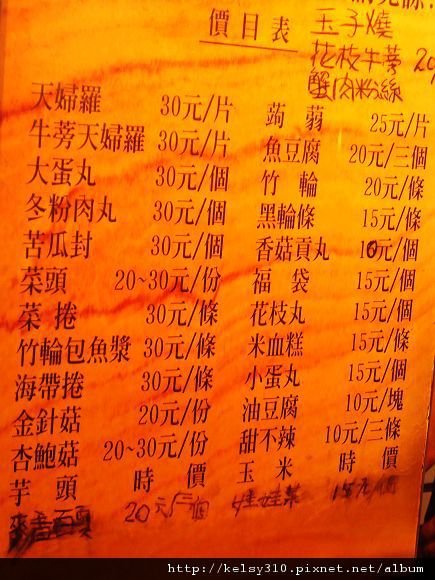 價目表
玉子燒
花枝牛蒡 20
蟹肉粉絲
天婦羅 30元/片
牛蒡天婦羅 30元/片
大蛋丸 30元/個
冬粉肉丸 30元/個
苦瓜封 30元/個
菜頭 20~30元/份
菜捲 30元/條
竹輪包魚漿 30元/條
海帶捲 30元/條
金針菇 20元/份
杏鮑菇 20~30元/份
芋頭 時價
20元/二個
蒟蒻 25元/片
魚豆腐 20元/三個
竹輪 20元/條
黑輪條 15元/條
香菇貢丸 10元/個
福袋 15元/個
花枝丸 15元/條
米血糕 15元/條
小蛋丸 15元/個
油豆腐 10元/塊
甜不辣 10元/三條
玉米 時價
娃娃菜 15元/個
http://kelsy310.pixnet.net/album